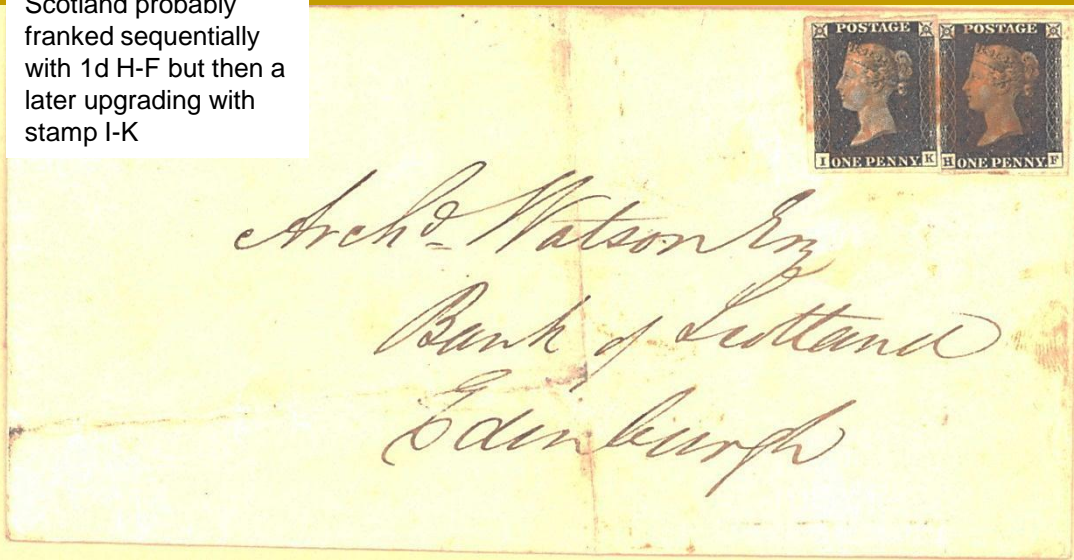 Scotland probably
franked sequentially
with 1d H-F but then a
later upgrading with
stamp I-K
POSTAGE
I ONE PENNY K
POSTAGE
H ONE PENNY F
Archd Watson Esq
Bank of Scotland
Edinburgh